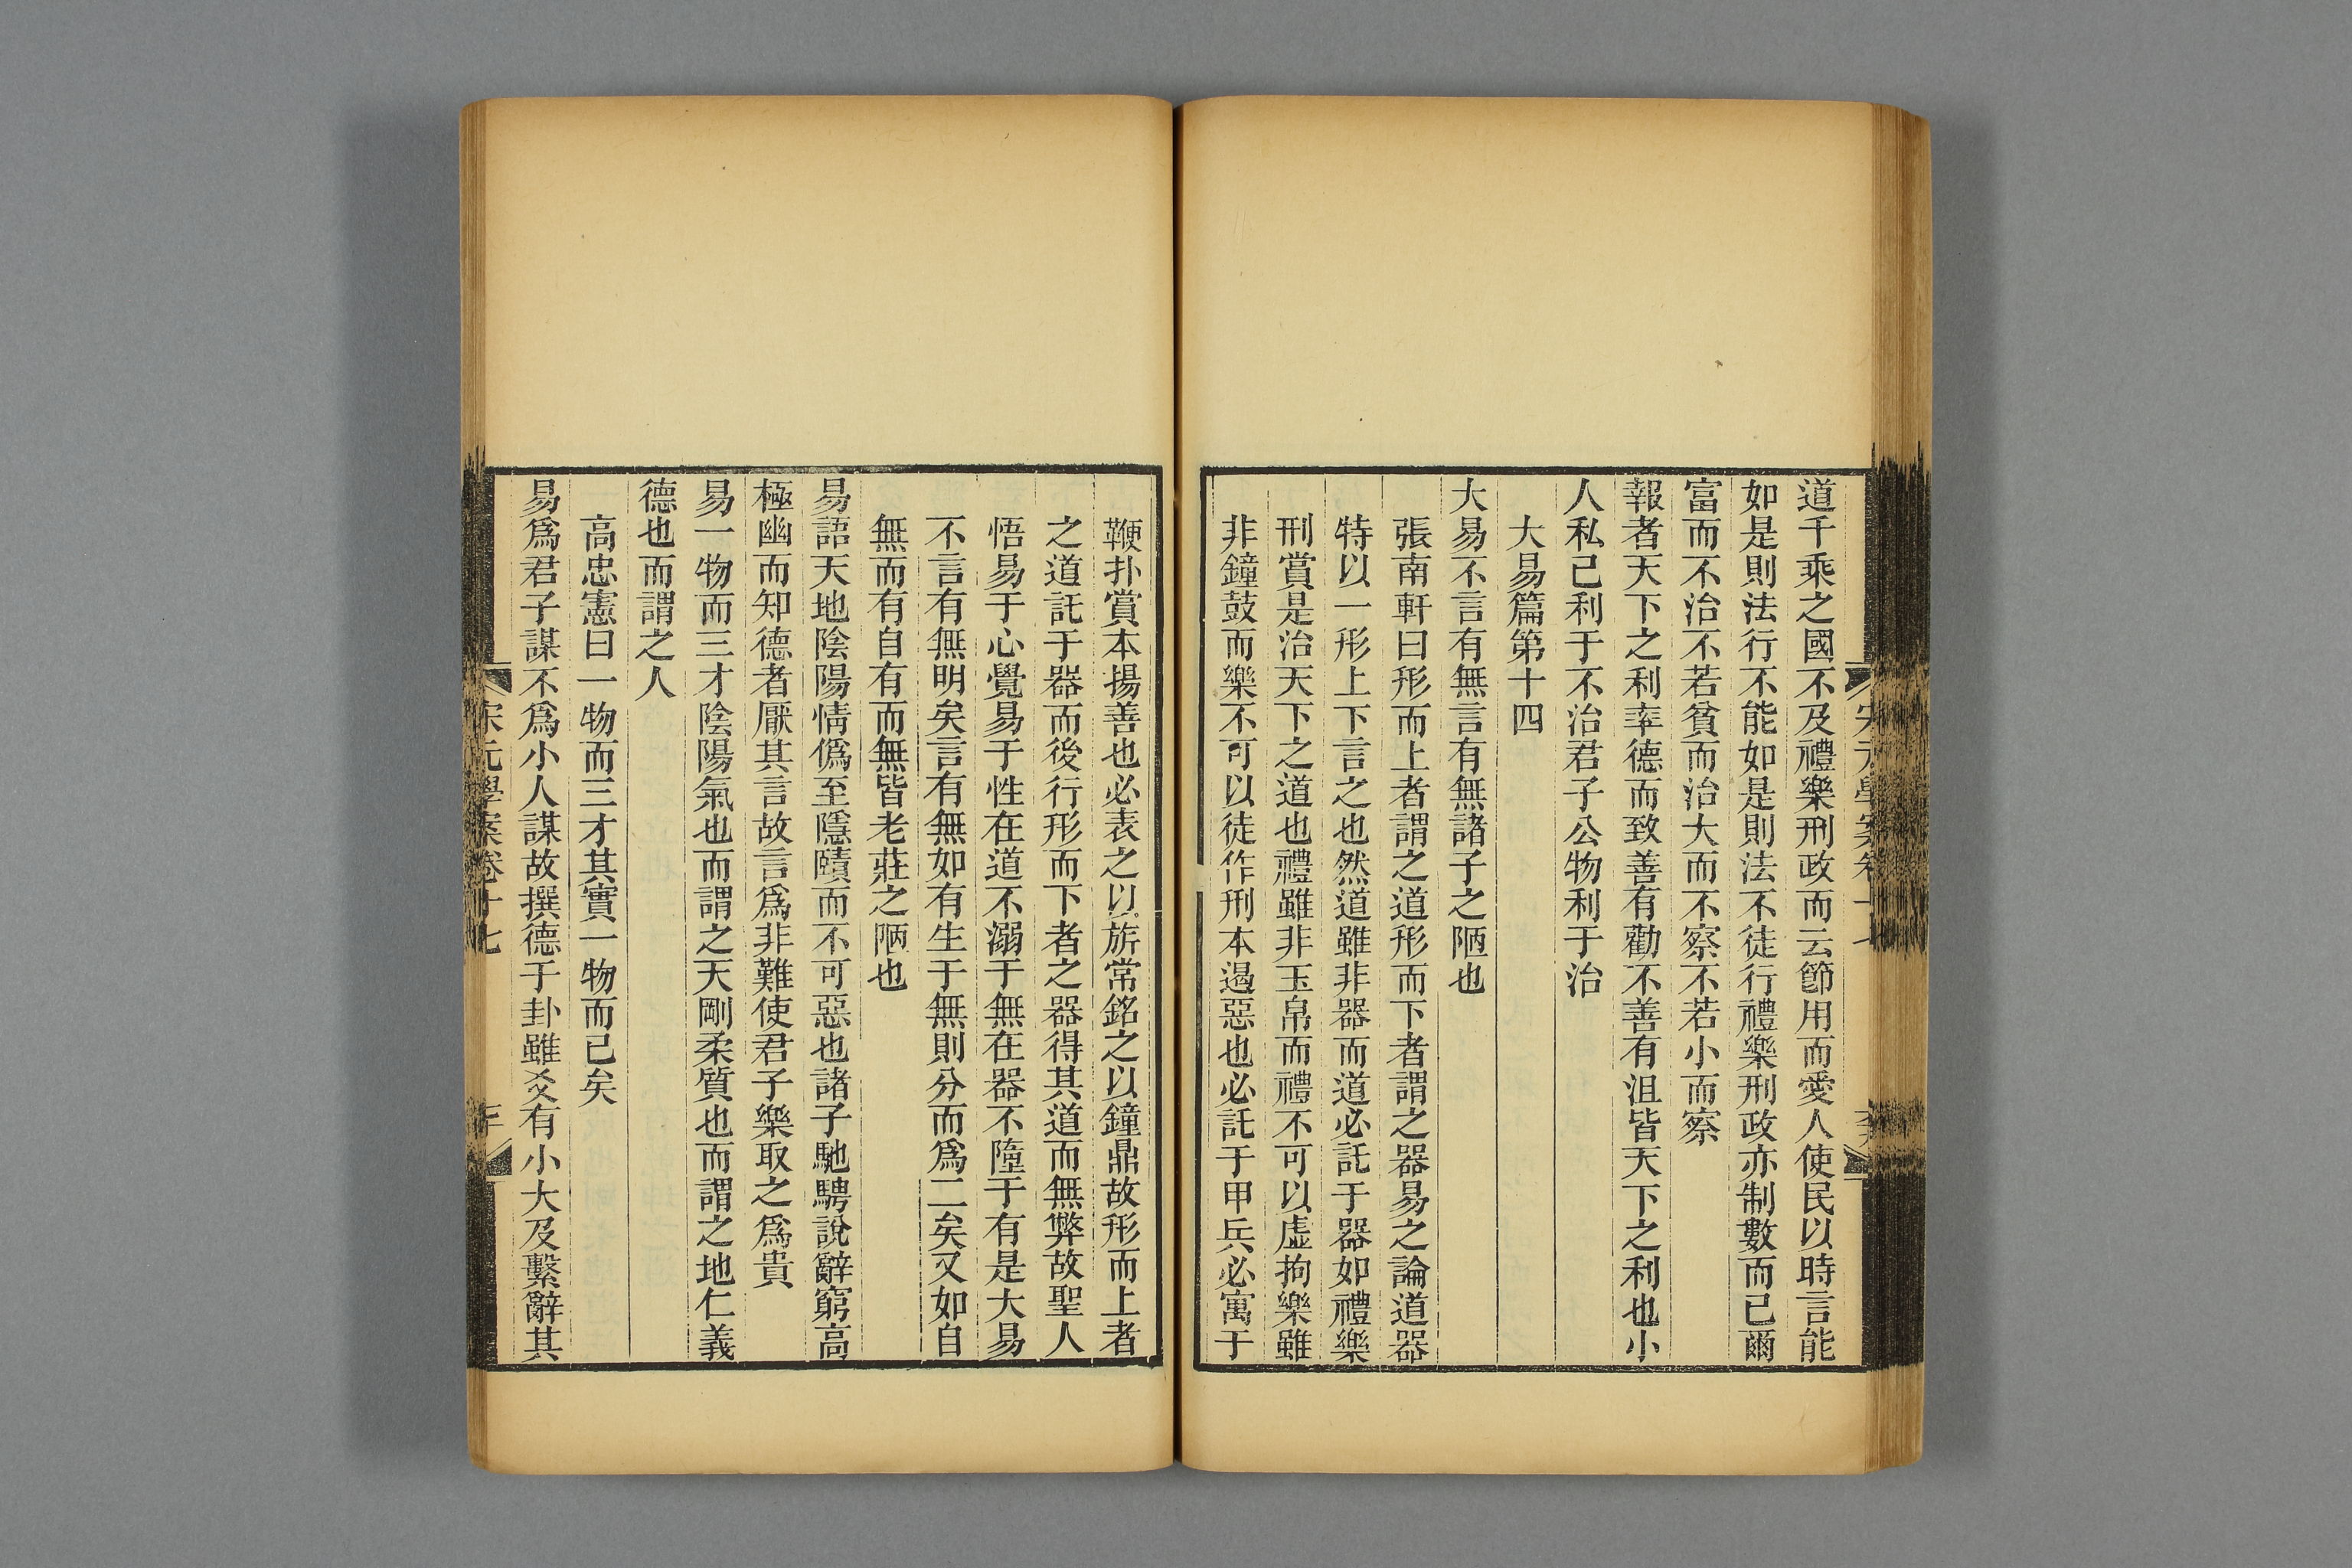 道千乘之國不及禮樂刑政而云節用而愛人使民以時言能
如是則法行不能如是則法不徒行禮樂刑政亦制數而已爾
富而不治不若貧而治大而不察不若小而察
報者天下之利率德而致善有勸不善有沮皆天下之利也小
人私己利于不治君子公物利于治
大易篇第十四
大易不言有無言有無諸子之陋也
張南軒曰形而上者謂之道形而下者謂之器易之論道器
特以一形上下言之也然道雖非器而道必託于器如禮樂
刑賞是治天下之道也禮雖非玉帛而禮不可以虛拘樂雖
非鐘鼓而樂不可以徒作刑本遏惡也必託于甲兵必寓于
鞭扑賞本揚善也必表之以旂常銘之以鐘鼎故形而上者
之道託于器而後行形而下者之器得其道而無弊故聖人
悟易于心覺易于性在道不溺于無在器不墮于有是大易
不言有無明矣言有無如有生于無則分而爲二矣又如自
無而有自有而無皆老莊之陋也
易語天地陰陽情僞至隱賾而不可惡也諸子馳騁說辭窮高
極幽而知德者厭其言故言爲非難使君子樂取之爲貴
易一物而三才陰陽氣也而謂之天剛柔質也而謂之地仁義
德也而謂之人
高忠憲曰一物而三才其實一物而已矣
易爲君子謀不爲小人謀故撰德于卦雖爻有小大及繫辭其
宋元學案卷十七